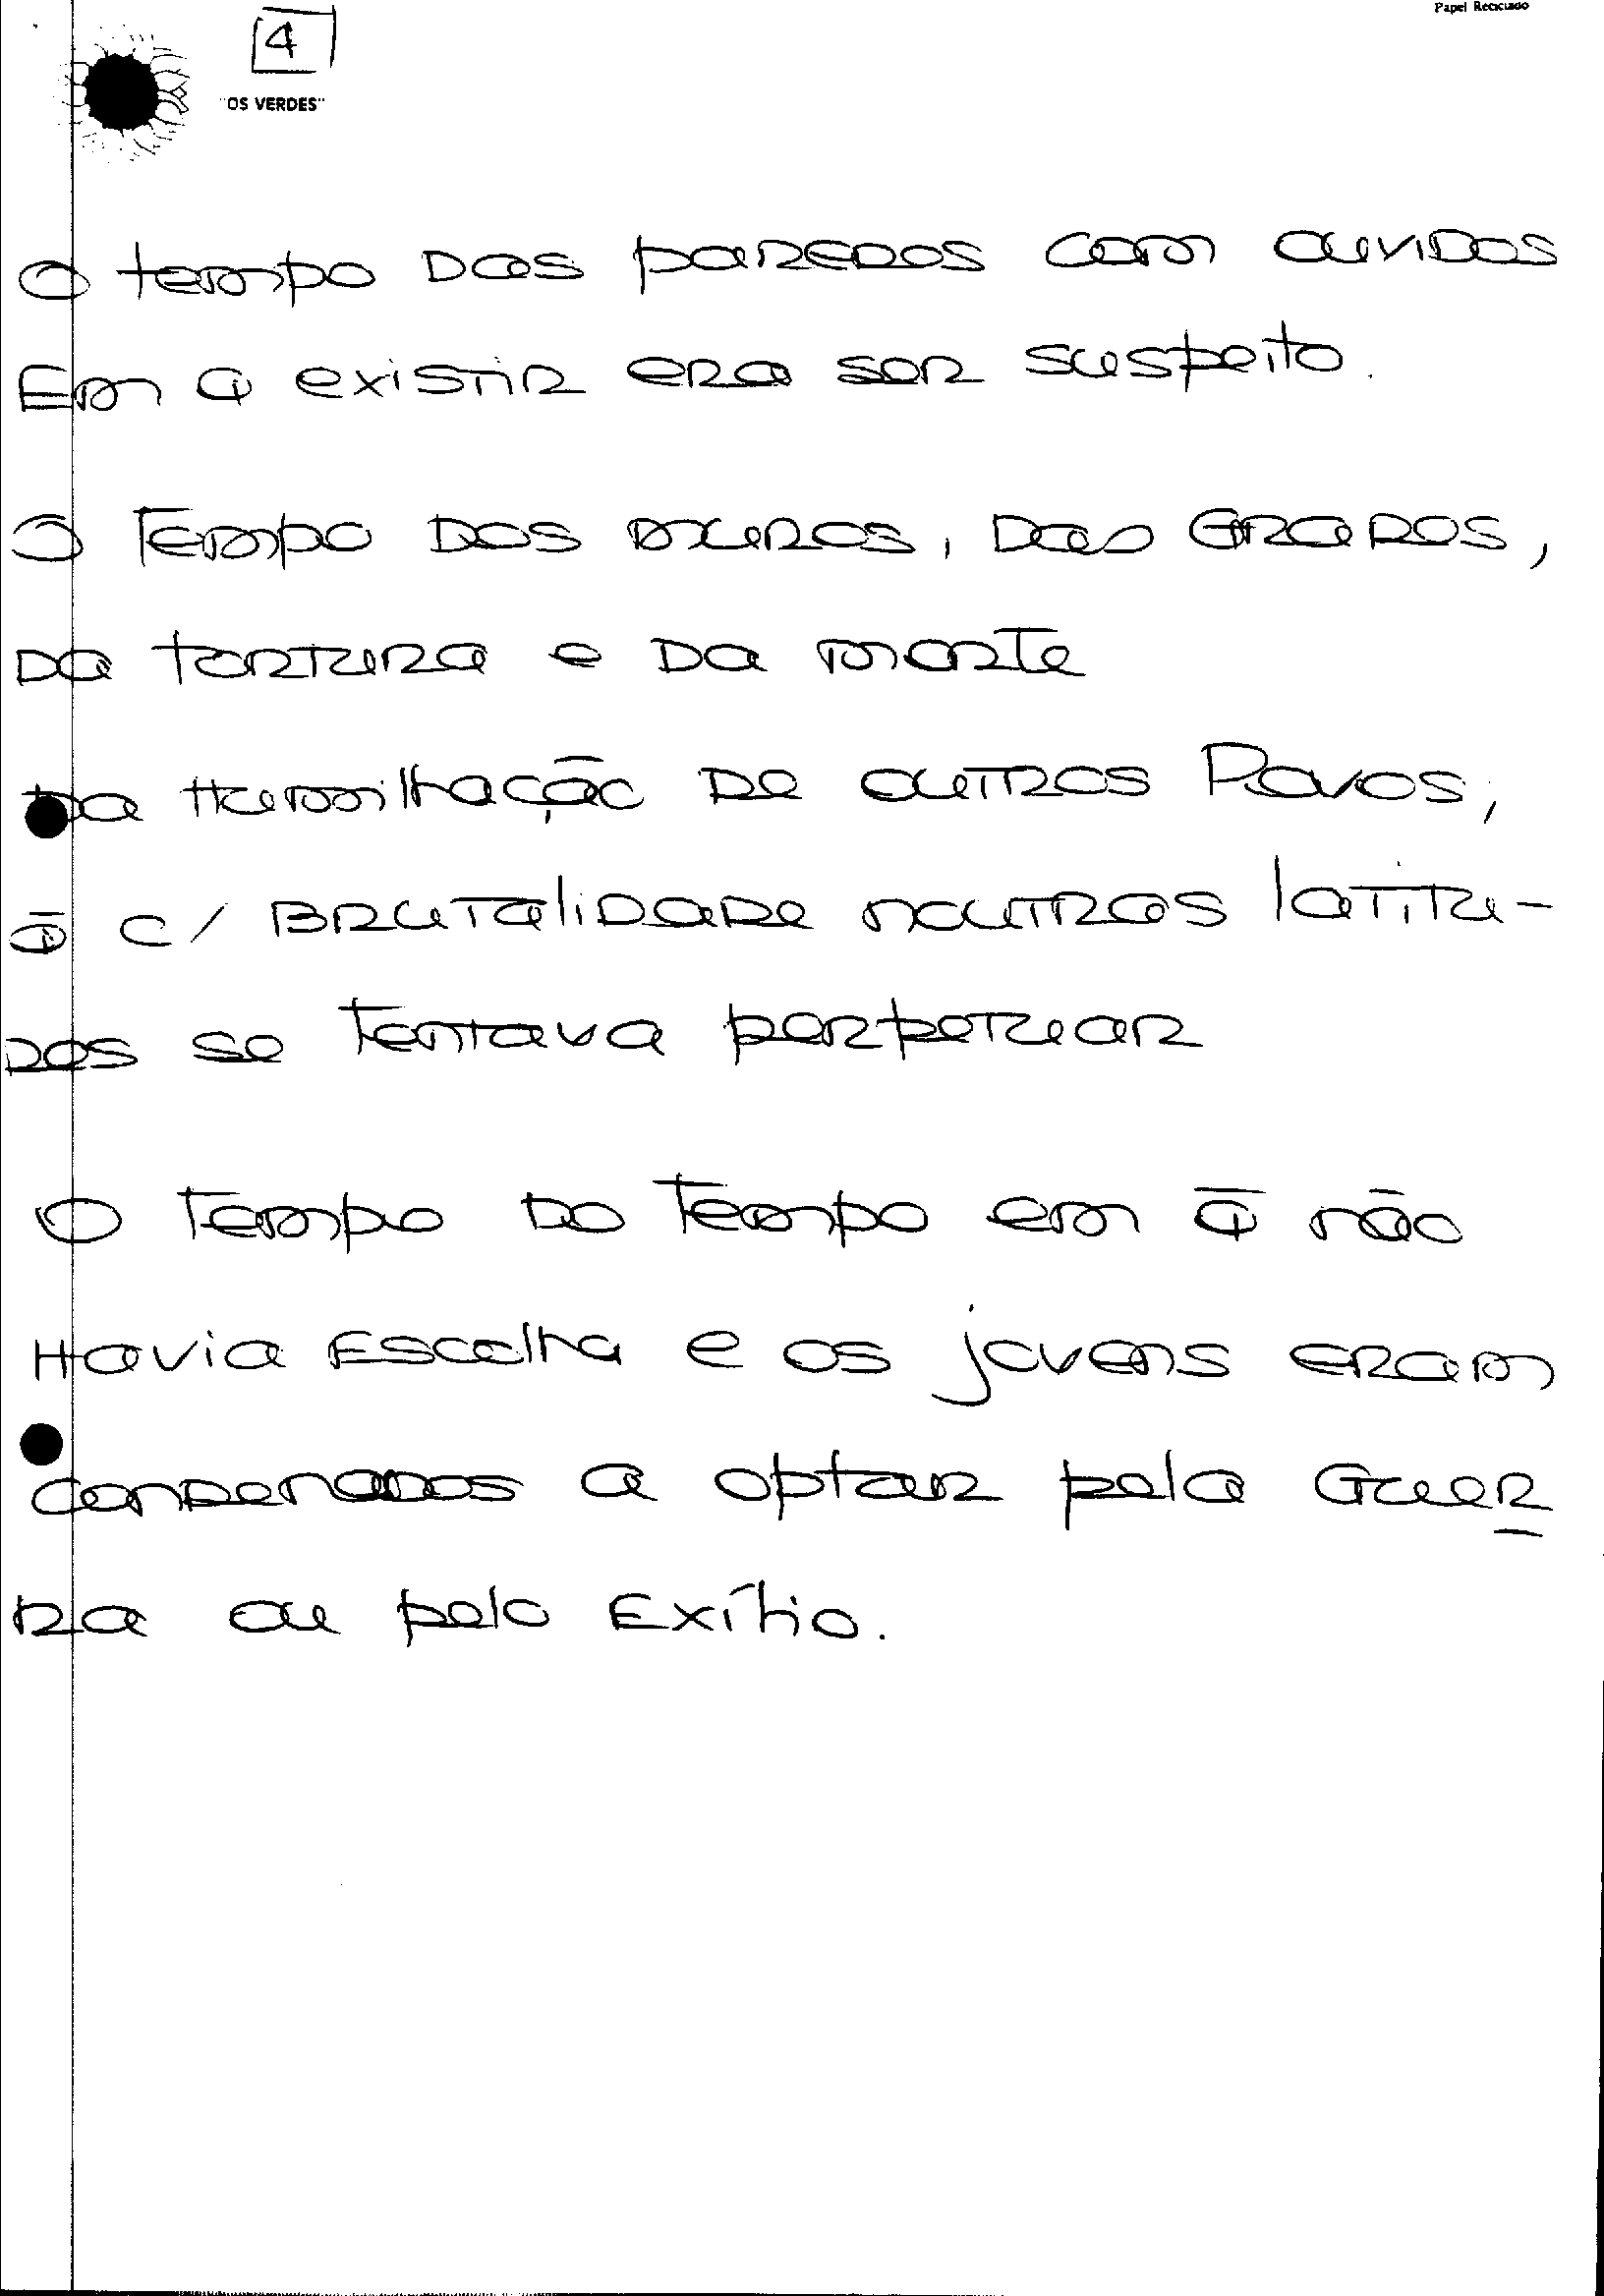 Papel Reciclado
4
"OS VERDES"
O tempo das paredes com ouvidos
Em q existir era ser suspeito.
O Tempo dos muros, das Grades,
da tortura e da morte
da Humilhação de outros Povos,
q̄ c/ Brutalidade noutras latitu-
des se Tentava perpetuar
O Tempo do Tempo em q̄ não
Havia Escolha e os jovens eram
condenados a optar pela Guer
ra ou pelo Exílio.